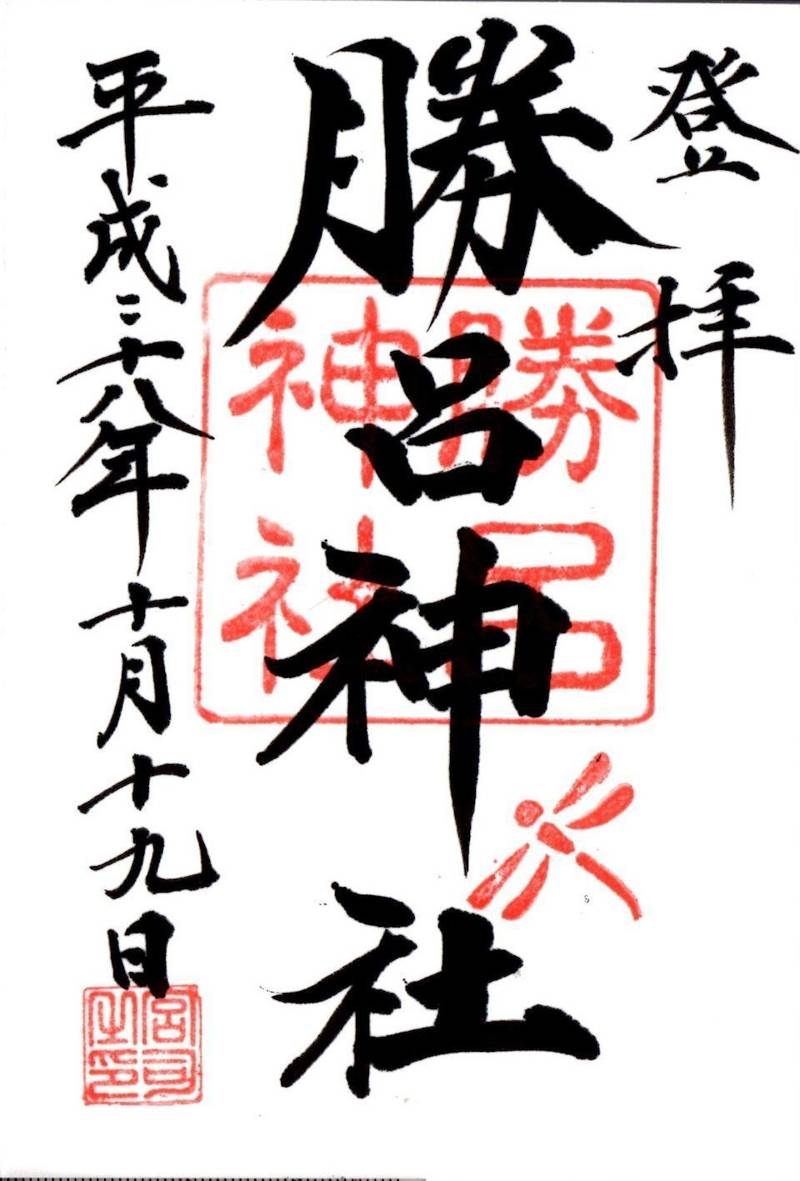 登拝
勝呂神社
勝呂神社
平成二十八年十月十九日
宮司之印